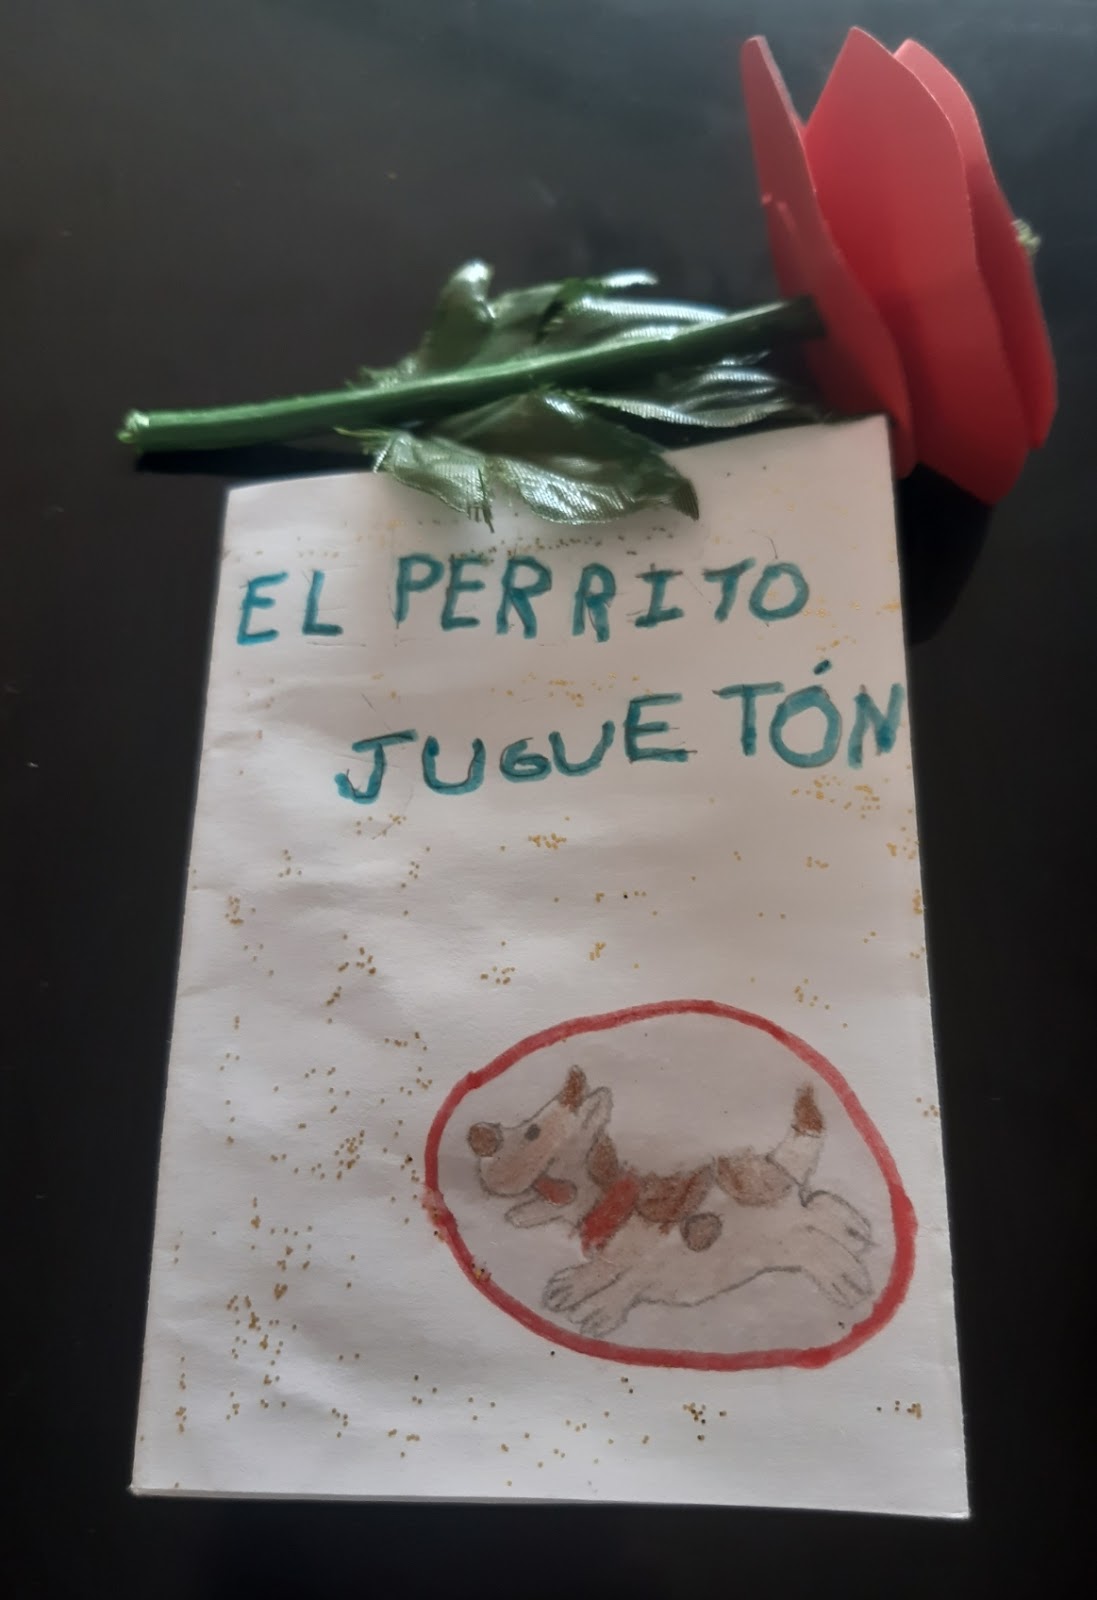 EL PERRITO
JUGUETÓN